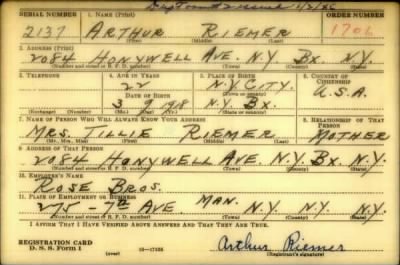 SERIAL NUMBER 1. NAME (Print) ORDER NUMBER
2137 ARTHUR RIEMER 1706
(First) (Middle) (Last)
2. ADDRESS (Print)
2084 HONYWELL AVE. N.Y. BX. N.Y.
(Number and street or R. F. D. number) (Town) (County) (State)
3. TELEPHONE 4. AGE IN YEARS 5. PLACE OF BIRTH 6. COUNTRY OF CITIZENSHIP
22 N.Y. CTY. U.S.A.
DATE OF BIRTH (Town or county)
3 9 918 N.Y. BX.
(Exchange) (Number) (Mo.) (Day) (Yr.) (State or country)
7. NAME OF PERSON WHO WILL ALWAYS KNOW YOUR ADDRESS 8. RELATIONSHIP OF THAT PERSON
MRS. TILLIE RIEMER MOTHER
(Mr., Mrs., Miss) (First) (Middle) (Last)
9. ADDRESS OF THAT PERSON
2084 HONYWELL AVE. N.Y. BX. N.Y.
(Number and street or R. F. D. number) (Town) (County) (State)
10. EMPLOYER'S NAME
ROSE BROS.
11. PLACE OF EMPLOYMENT OR BUSINESS
275 - 7TH AVE MAN. N.Y. N.Y.
(Number and street or R. F. D. number) (Town) (County) (State)
I AFFIRM THAT I HAVE VERIFIED ABOVE ANSWERS AND THAT THEY ARE TRUE.
REGISTRATION CARD
D. S. S. Form 1 16-17105 Arthur Riemer
(Registrant's signature)